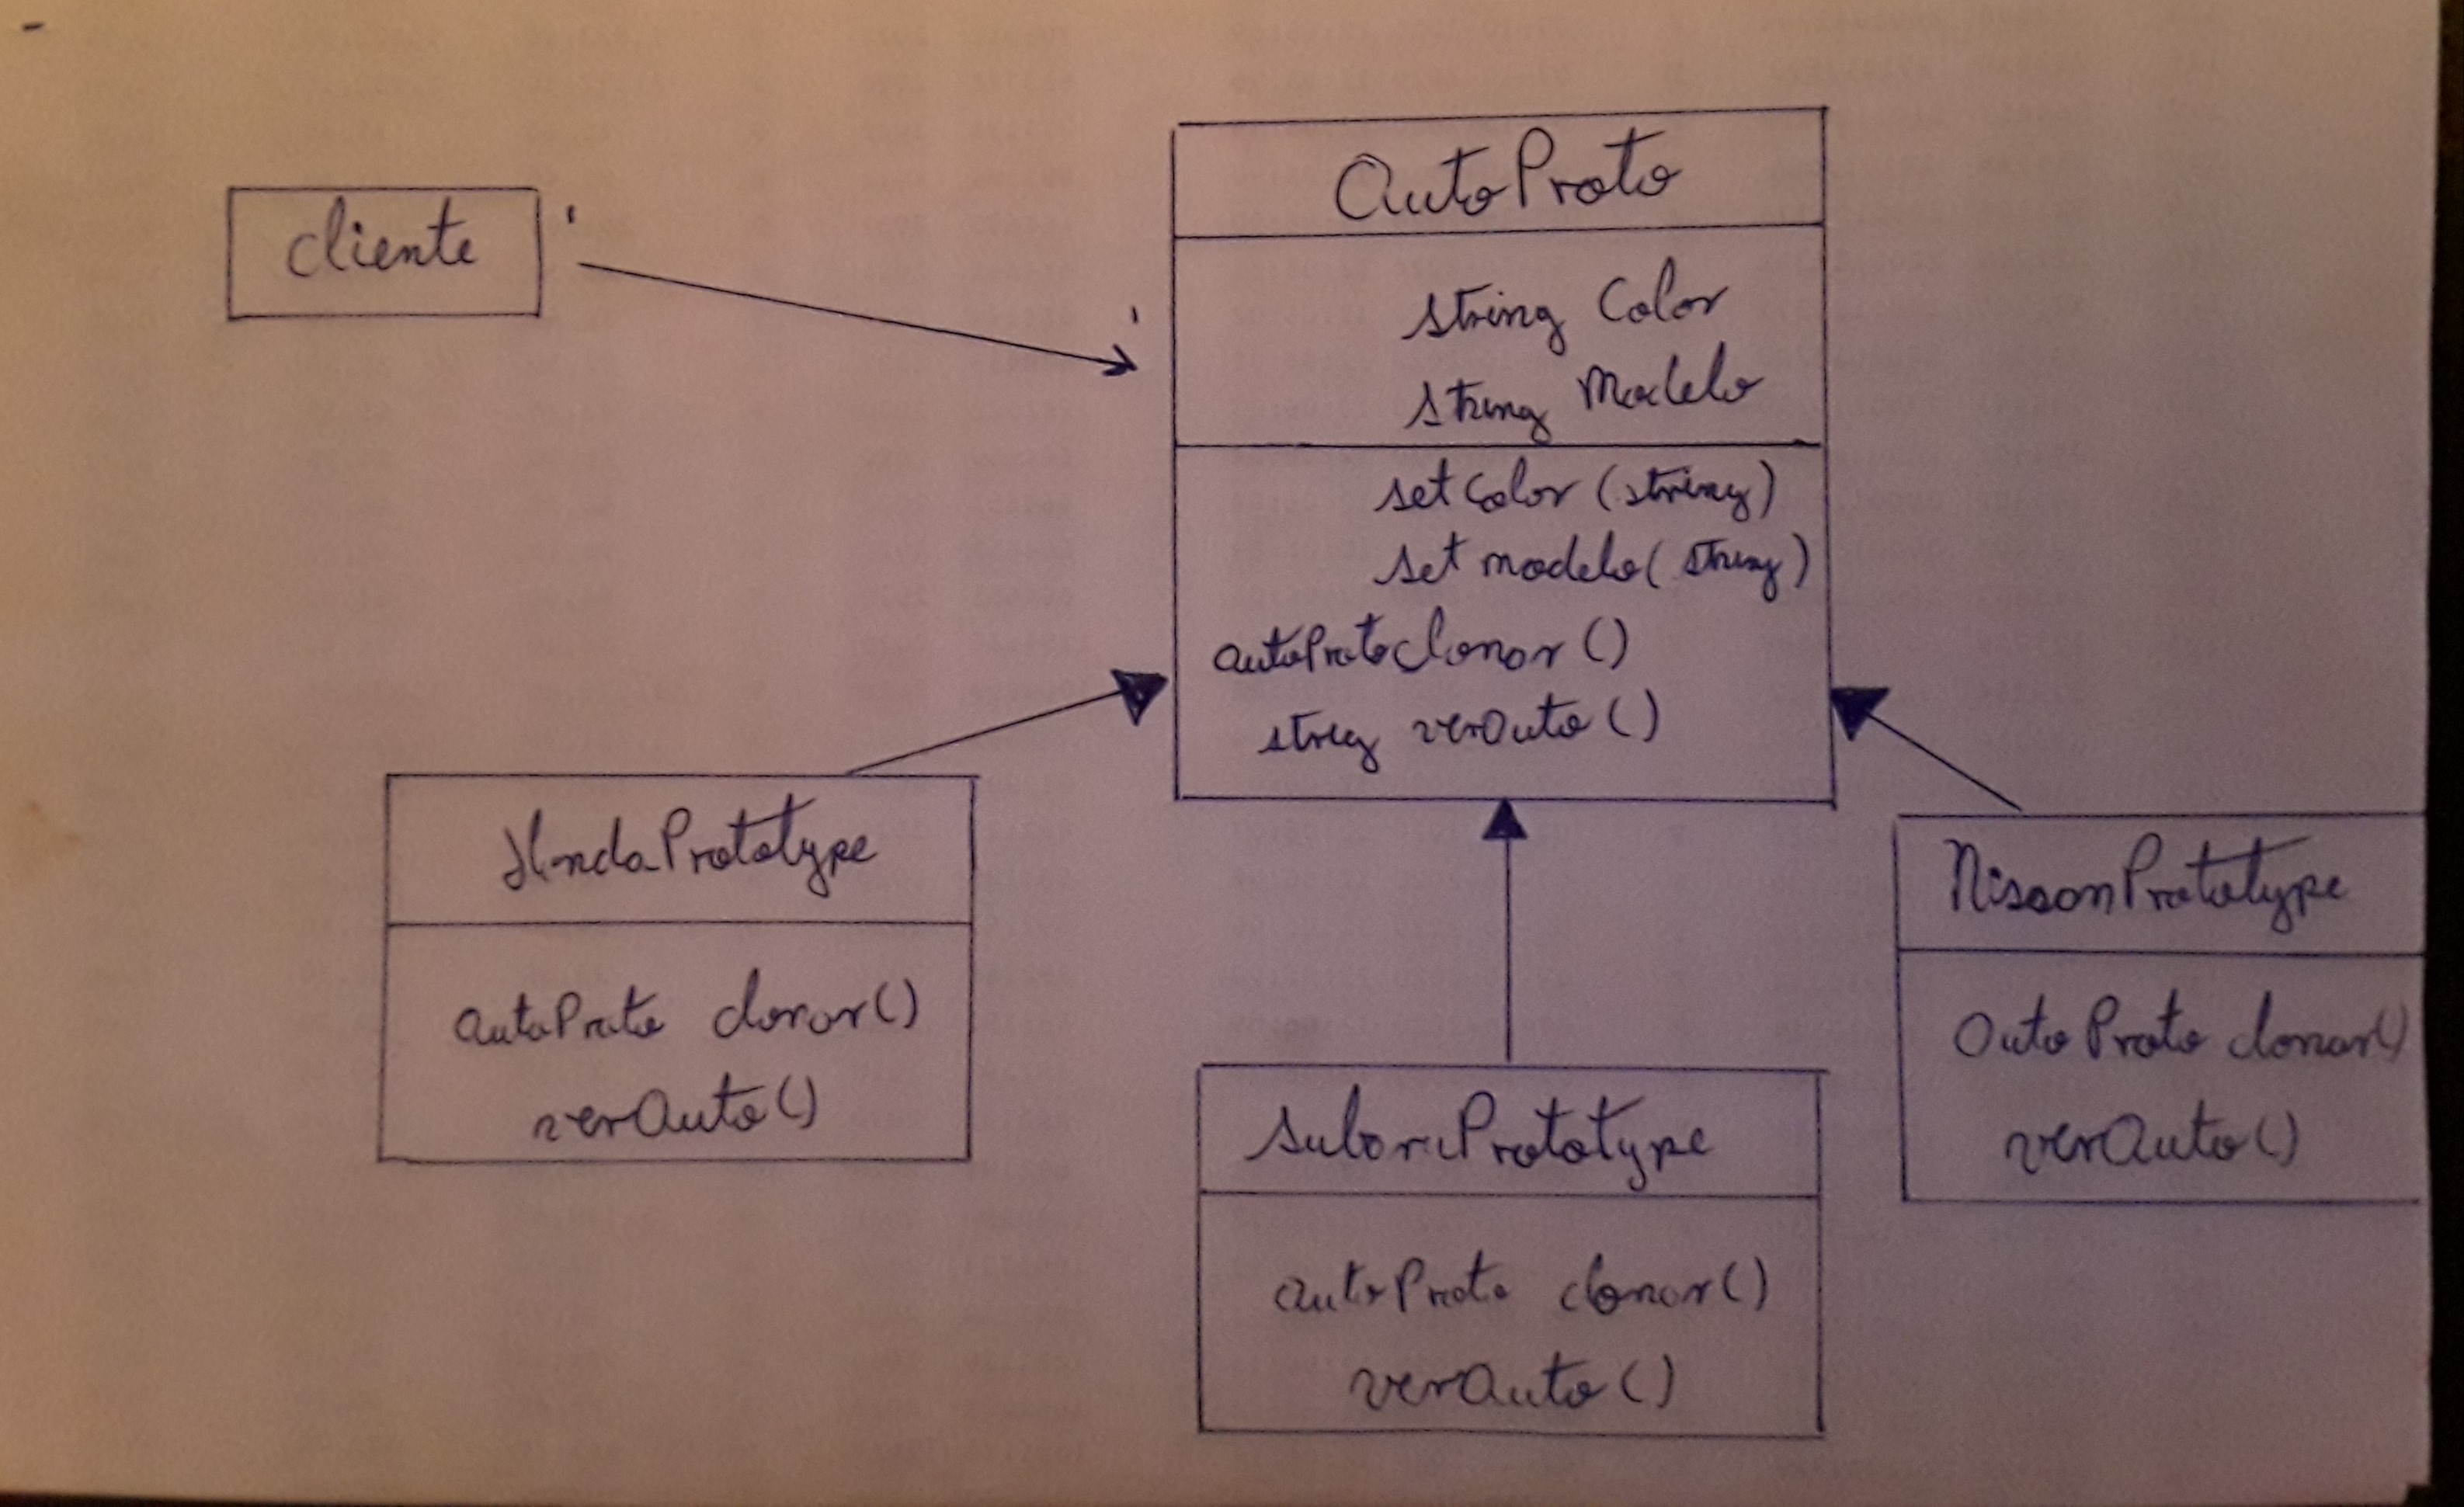 cliente
AutoProto
string Color
string Modelo
setColor (string)
set modelo (string)
autoProto clonar ()
string verAuto ()
HondaPrototype
autoProto clonar()
verAuto()
NissanPrototype
AutoProto clonar()
verAuto()
subaruPrototype
autoProto clonar()
verAuto()